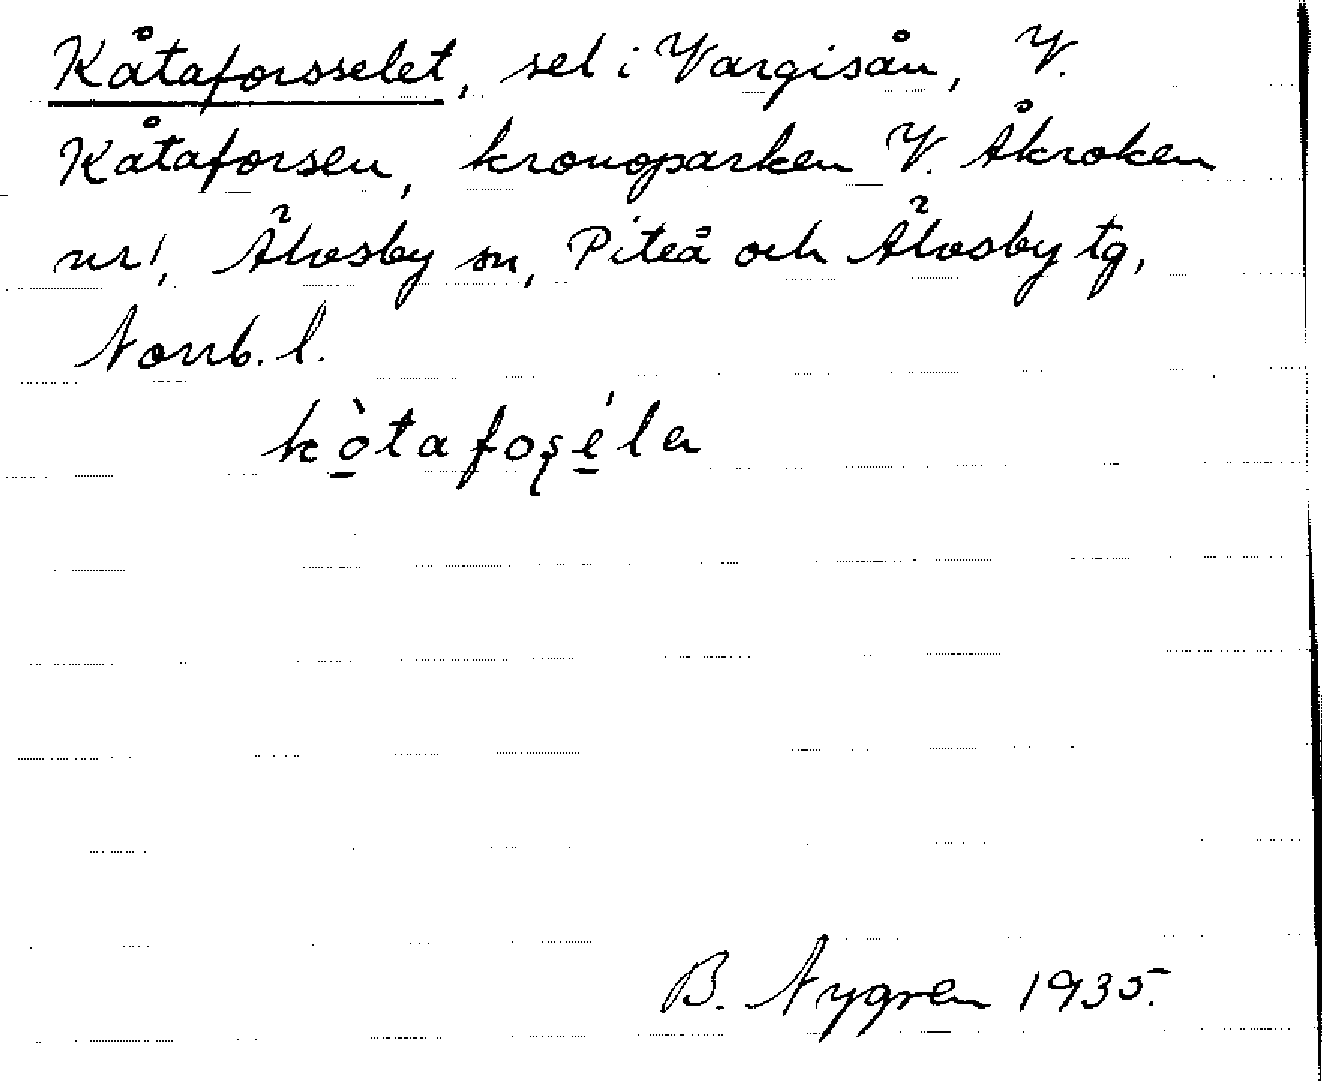 Kåtaforsselet, sel i Vargisån, V.
Kåtaforsen, kronoparken V. Åkroken
nr 1, Älvsby sn, Piteå och Älvsby tg,
Norrb. l.
kò̱tafoʂé̱la
B. Nygren 1935.